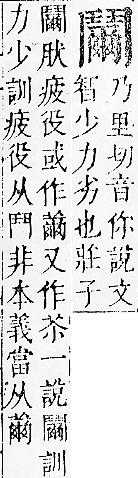 𩰞
乃里切音你說文
智少力劣也莊子
𩰞肰疲役或作薾又作苶一說𩰞訓
力少訓疲役从鬥非本義當从薾